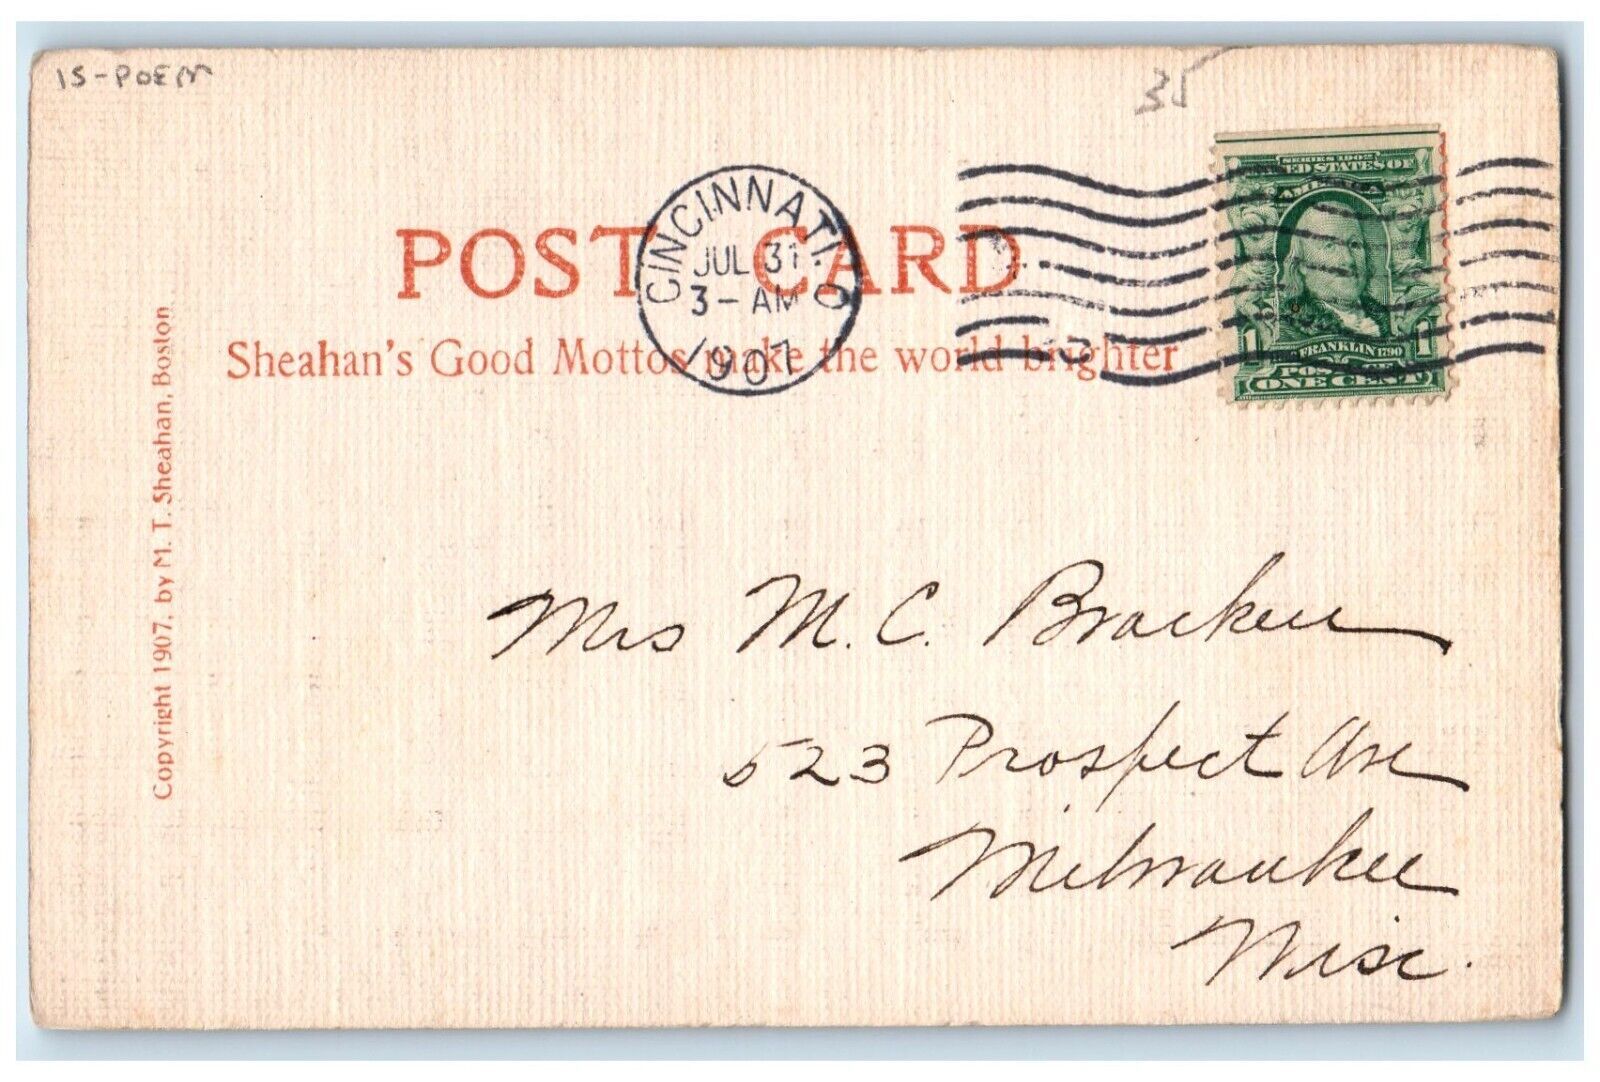 IS-POEM
35
POST CARD
CINCINNATI. O
JUL 31
3-AM
1907
Sheahan's Good Mottos make the world brighter
SERIES 1902
ED STATES OF
AMERICA
FRANKLIN 1790
1 1
POSTAGE
ONE CENT
Copyright 1907, by M. T. Sheahan, Boston
Mrs M. C. Bracken
523 Prospect Ave
Milwaukee
Wisc.